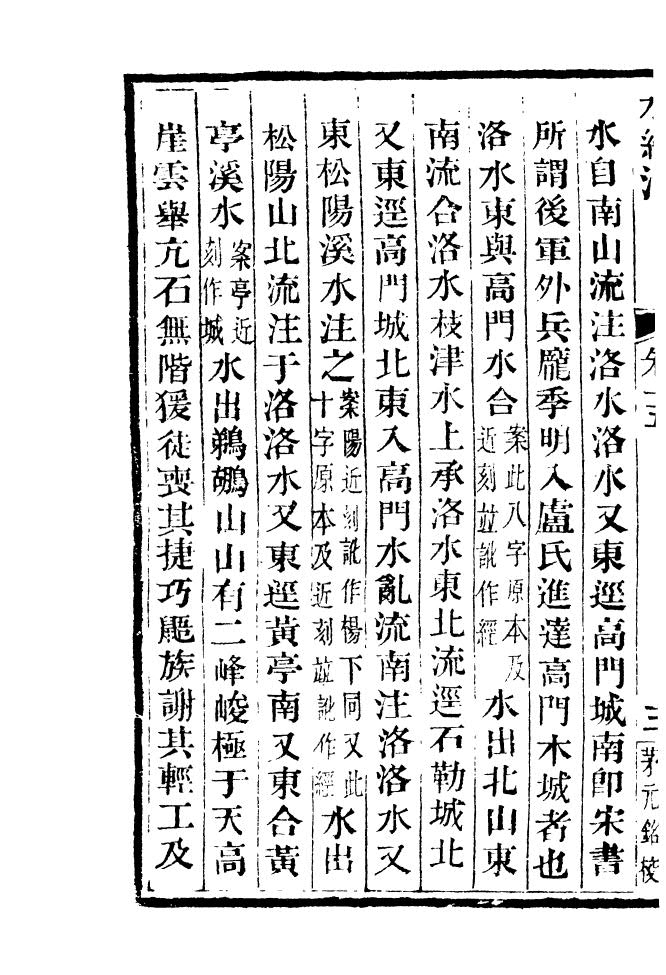 水經注
卷十五
三
茅元銘校
水自南山流注洛水洛水又東逕高門城南卽宋書
所謂後軍外兵龐季明入盧氏進達高門木城者也
洛水東與高門水合案此八字原本及近刻並訛作經水出北山東
南流合洛水枝津水上承洛水東北流逕石勒城北
又東逕高門城北東入高門水亂流南注洛洛水又
東松陽溪水注之案陽近刻訛作楊下同又此十字原本及近刻並訛作經水出
松陽山北流注于洛洛水又東逕黃亭南又東合黃
亭溪水案亭近刻作城水出鵜鶘山山有二峰峻極于天高
崖雲舉亢石無階猨徒喪其捷巧鼯族謝其輕工及